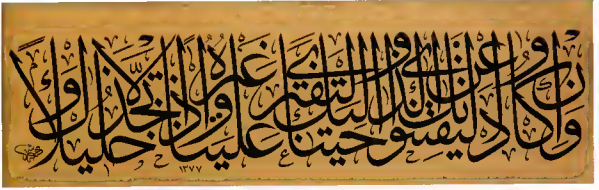 وَإِن كَادُوا لَيَفْتِنُونَكَ عَنِ الَّذِي أَوْحَيْنَا إِلَيْكَ لِتَفْتَرِيَ عَلَيْنَا غَيْرَهُ وَإِذًا لَّاتَّخَذُوكَ خَلِيلًا
١٣٧٧